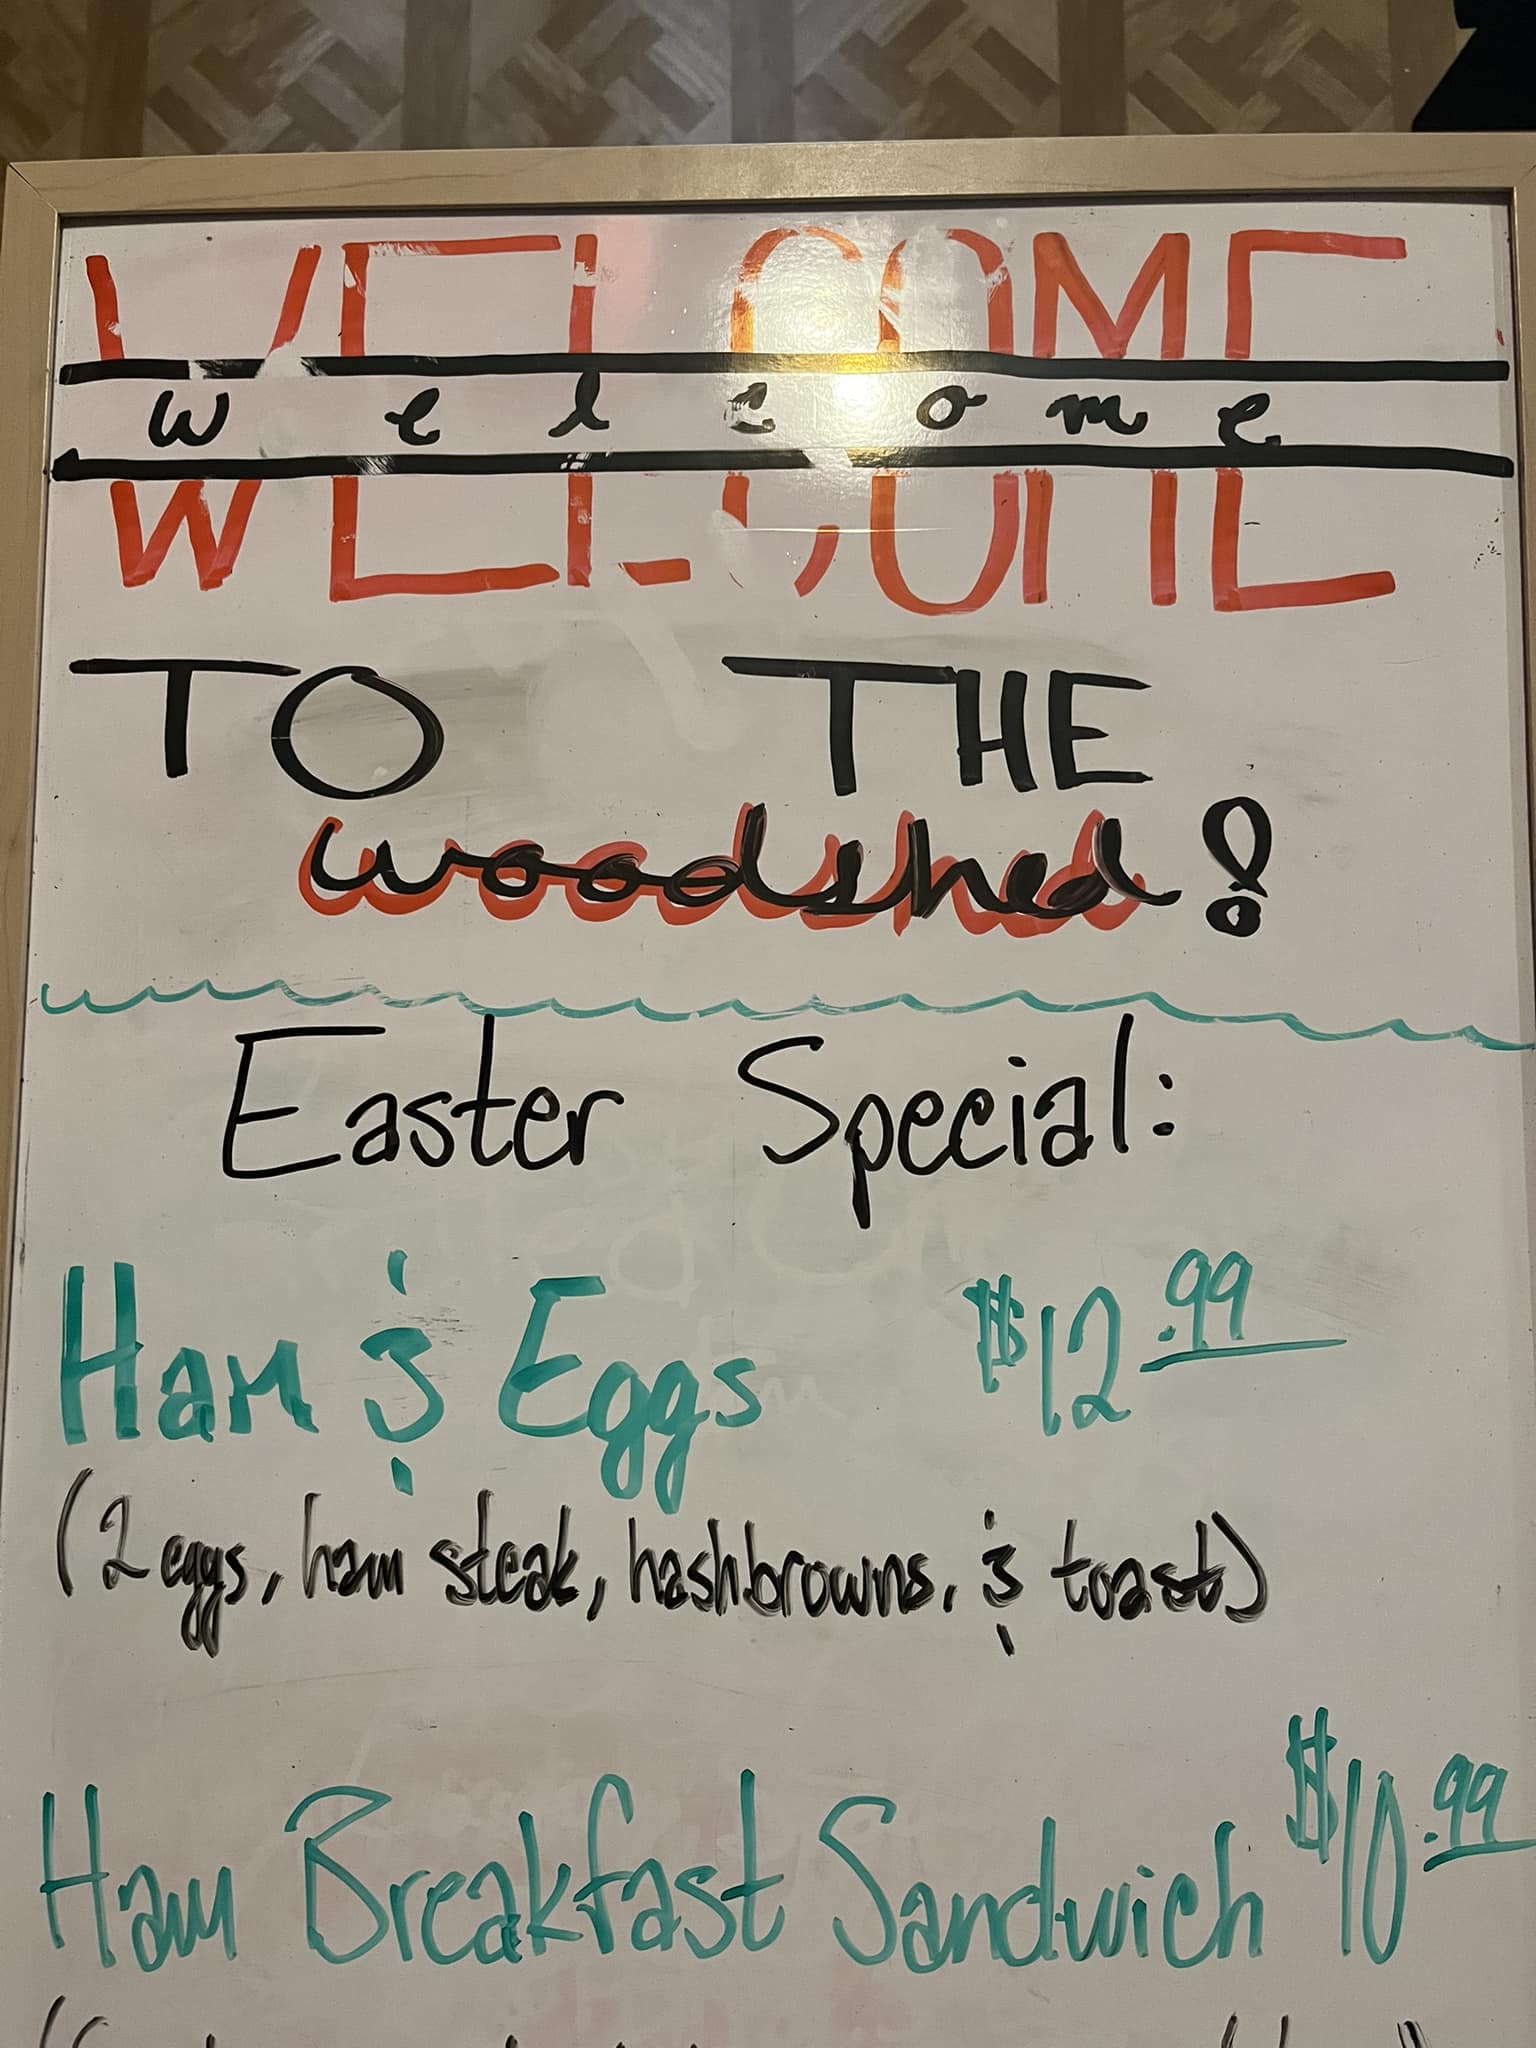 WELCOME
welcome
TO THE
woodshed!
Easter Special:
Ham & Eggs $12.99
(2 eggs, ham steak, hashbrowns, & toast)
Ham Breakfast Sandwich $10.99